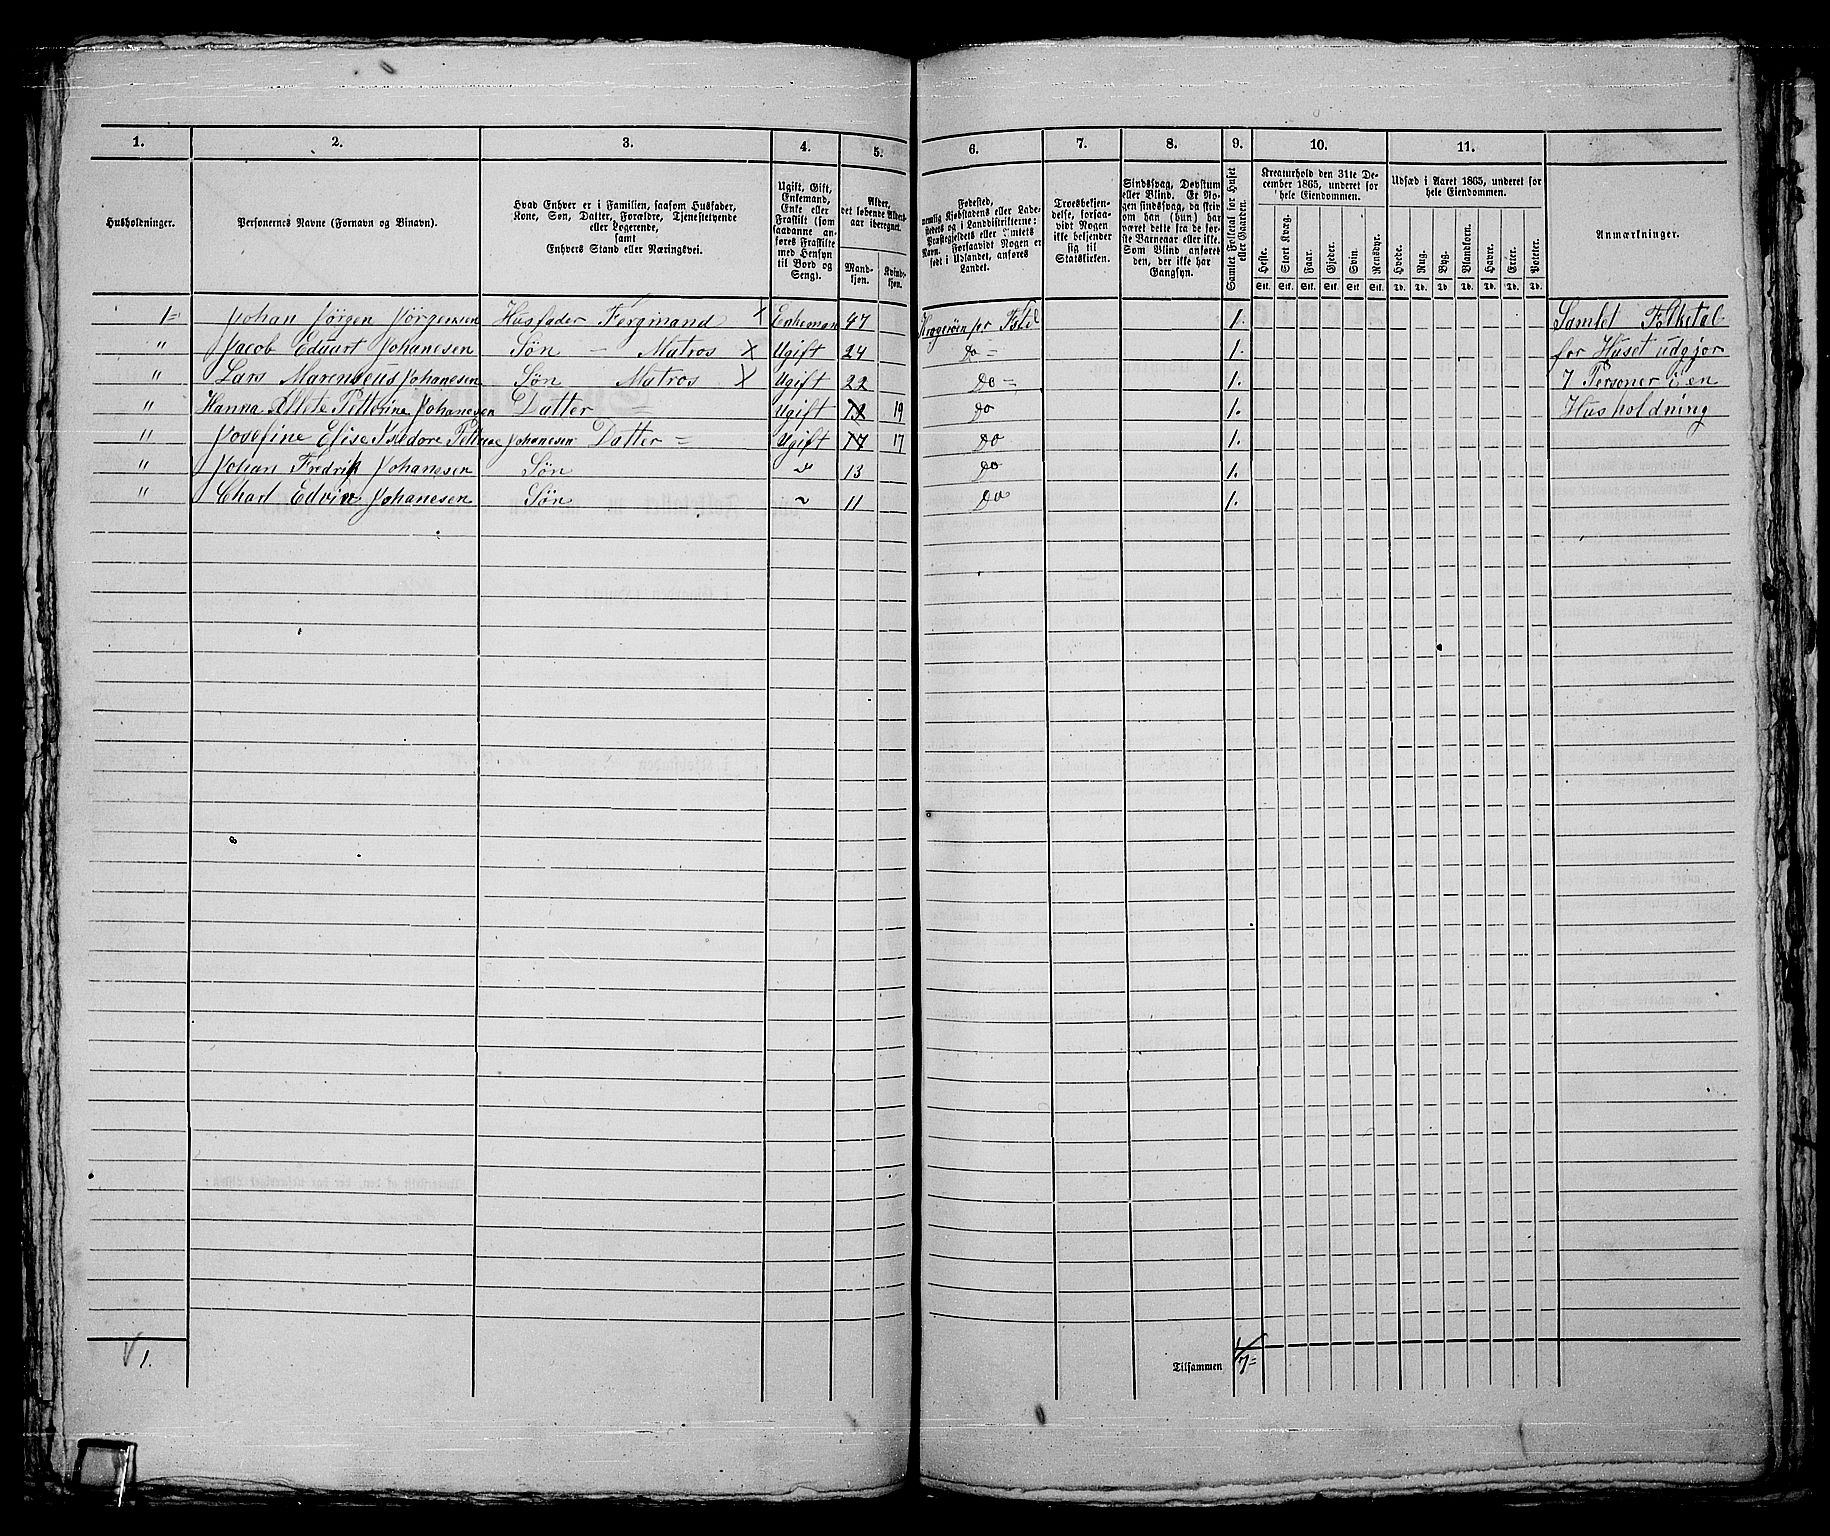 1. 2. 3. 4. 5. 6. 7. 8. 9. 10. 11.
Husholdninger.
Personernes Navne (Fornavn og Binavn).
Hvad Enhver er i Familien, saasom Husfader,
Kone, Søn, Datter, Forældre, Tjenestetyende
eller Logerende,
samt
Enhvers Stand eller Næringsvei.
Ugift, Gift,
Enkemand,
Enke eller
Fraskilt (som
saadanne an-
føres Fraskilte
med Hensyn
til Bord og
Seng).
Alder,
det løbende Alders-
aar iberegnet.
Mand-
kjøn.
Kvind-
kjøn.
Fødested,
nemlig Kjøbstadens eller Lade-
stedets og i Landdistrikterne:
Præstegjeldets eller Amtets
Navn. Forsaavidt Nogen er
født i Udlandet, anføres
Landet.
Troesbekjen-
delse, forsaa-
vidt Nogen
ikke bekjender
sig til
Statskirken.
Sindssvag, Døvstum
eller Blind. Er No-
gen sindssvag, da skriv
om han (hun) har
været dette fra de før-
ste Barneaar eller ikke.
Som Blind anføres
den, der ikke har
Gangsyn.
Samlet Folketal for Huset
eller Gaarden.
Kreaturhold den 31te De-
cember 1865, underet for
hele Eiendommen.
Heste. Stort Kvæg. Faar. Gjeder. Svin. Rensdyr.
Stk. Stk. Stk. Stk. Stk. Stk.
Udsæd i Aaret 1865, underet for
hele Eiendommen.
Hvede. Rug. Byg. Blandkorn. Havre. Erter. Poteter.
Td. Td. Td. Td. Td. Td. Td.
Anmærkninger.
1= Johan Jørgen Jørgensen Husfader Fergmand X Enkeman 47 Kragerøen 1. Samlet Folketal
" Jacob Eduart Johanesen Søn - Matros X Ugift 24 Do = 1. for Huset udgjør
" Lars Marenseus Johanesen Søn Matros X Ugift 22 Do = 1. 7 Personer i en
" Hanna Petterine Johanesen Datter = Ugift 19 Do 1. Husholdning
" Josefine Elise Johanesen Datter = Ugift 17 17 Do 1.
" Johan Fredrik Johanesen Søn 13 Do 1.
" Charl Edvin Johanesen Søn 11 Do 1.
1.
Tilsammen 7=